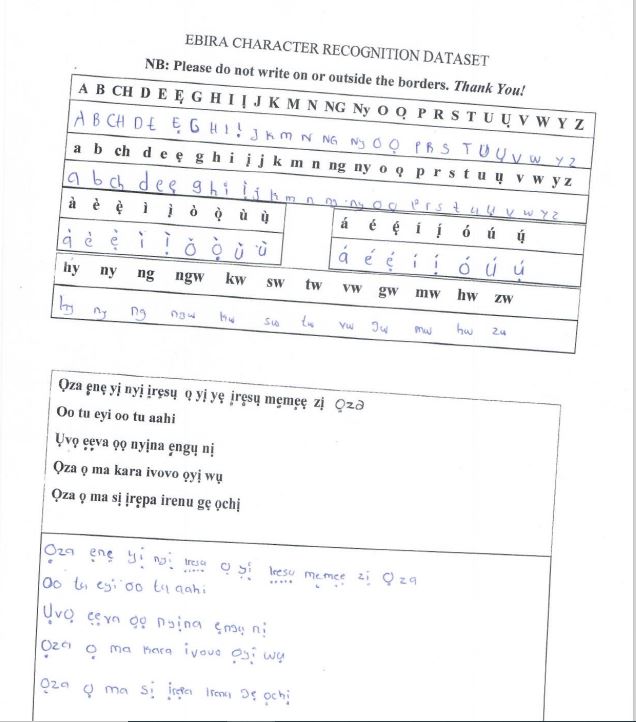 EBIRA CHARACTER RECOGNITION DATASET
NB: Please do not write on or outside the borders. Thank You!
A B CH D E Ẹ G H I Ị J K M N NG Ny O Ọ P R S T U Ụ V W Y Z
A B CH D E Ẹ G H I Ị J K M N NG Ny O Ọ P R S T U Ụ V W Y Z
a b ch d e ẹ g h i ị j k m n ng ny o ọ p r s t u ụ v w y z
a b ch d e ẹ g h i ị j k m n ng ny o ọ p r s t u ụ v w y z
à è ẹ̀ ì ị̀ ò ọ̀ ù ụ̀
á é ẹ́ í ị́ ó ú ụ́
à è ẹ̀ ì ị̀ ò ọ̀ ù ụ̀
á é ẹ́ í ị́ ó ú ụ́
hy ny ng ngw kw sw tw vw gw mw hw zw
hy ny ng ngw kw sw tw vw gw mw hw zw
Ọza ẹnẹ yị nyị ịrẹsụ ọ yị yẹ ịrẹsụ mẹmẹẹ zị Ọza
Oo tu eyi oo tu aahi
Ụvọ ẹẹva ọọ nyịna ẹngụ nị
Ọza ọ ma kara ivovo ọyị wụ
Ọza ọ ma sị ịrẹpa irenu gẹ ọchị
Ọza ẹnẹ yị nyị ịrẹsụ ọ yị ịrẹsụ mẹmẹẹ zị Ọza
Oo tu eyi oo tu aahi
Ụvọ ẹẹva ọọ nyịna ẹngụ nị
Ọza ọ ma kara ivovo ọyị wụ
Ọza ọ ma sị ịrẹpa irenu gẹ ọchị